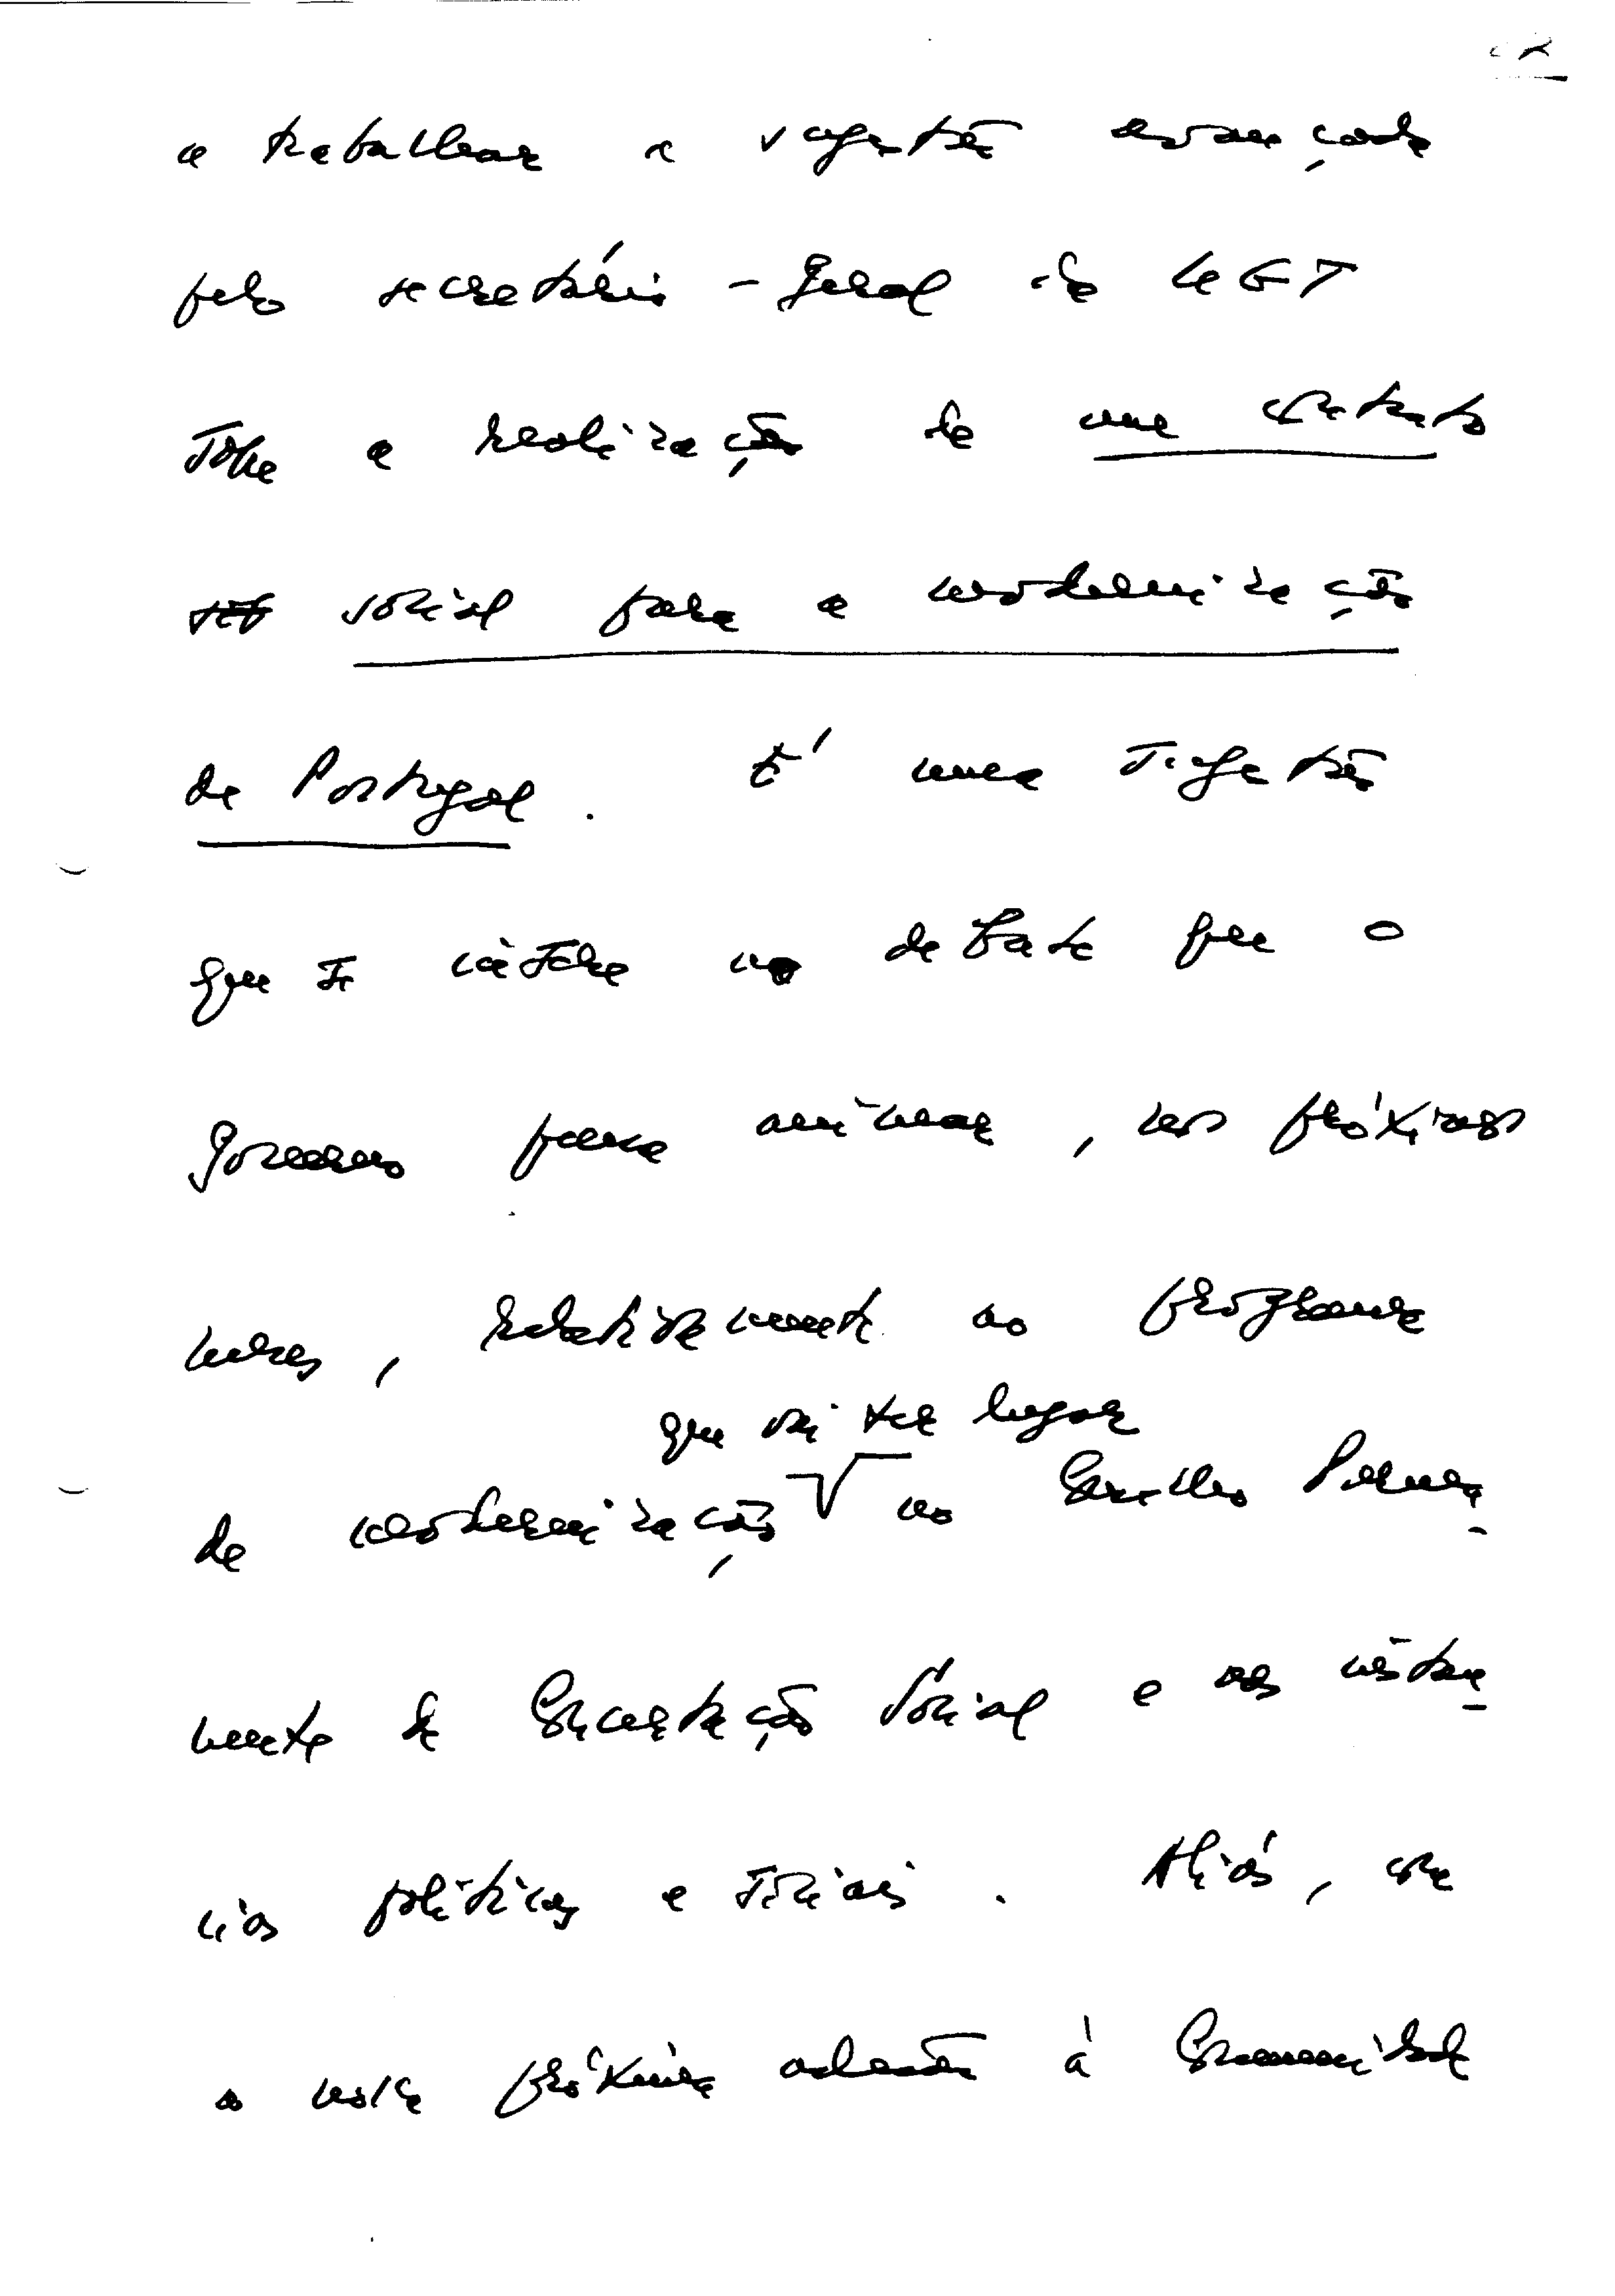 a trabalhar a sugestão avançada
pelo secretário-geral da UGT
sobre a realização de um contrato
social para a modernização
de Portugal. É uma sugestão
que se insere no debate que o
Governo quer animar, nos próximos
meses, relativamente ao programa
que vai ter lugar
de modernização no Conselho Perma-
nente de Concertação Social e nas instân-
cias políticas e sociais. Aliás, com
a nossa próxima adesão à Comunidade